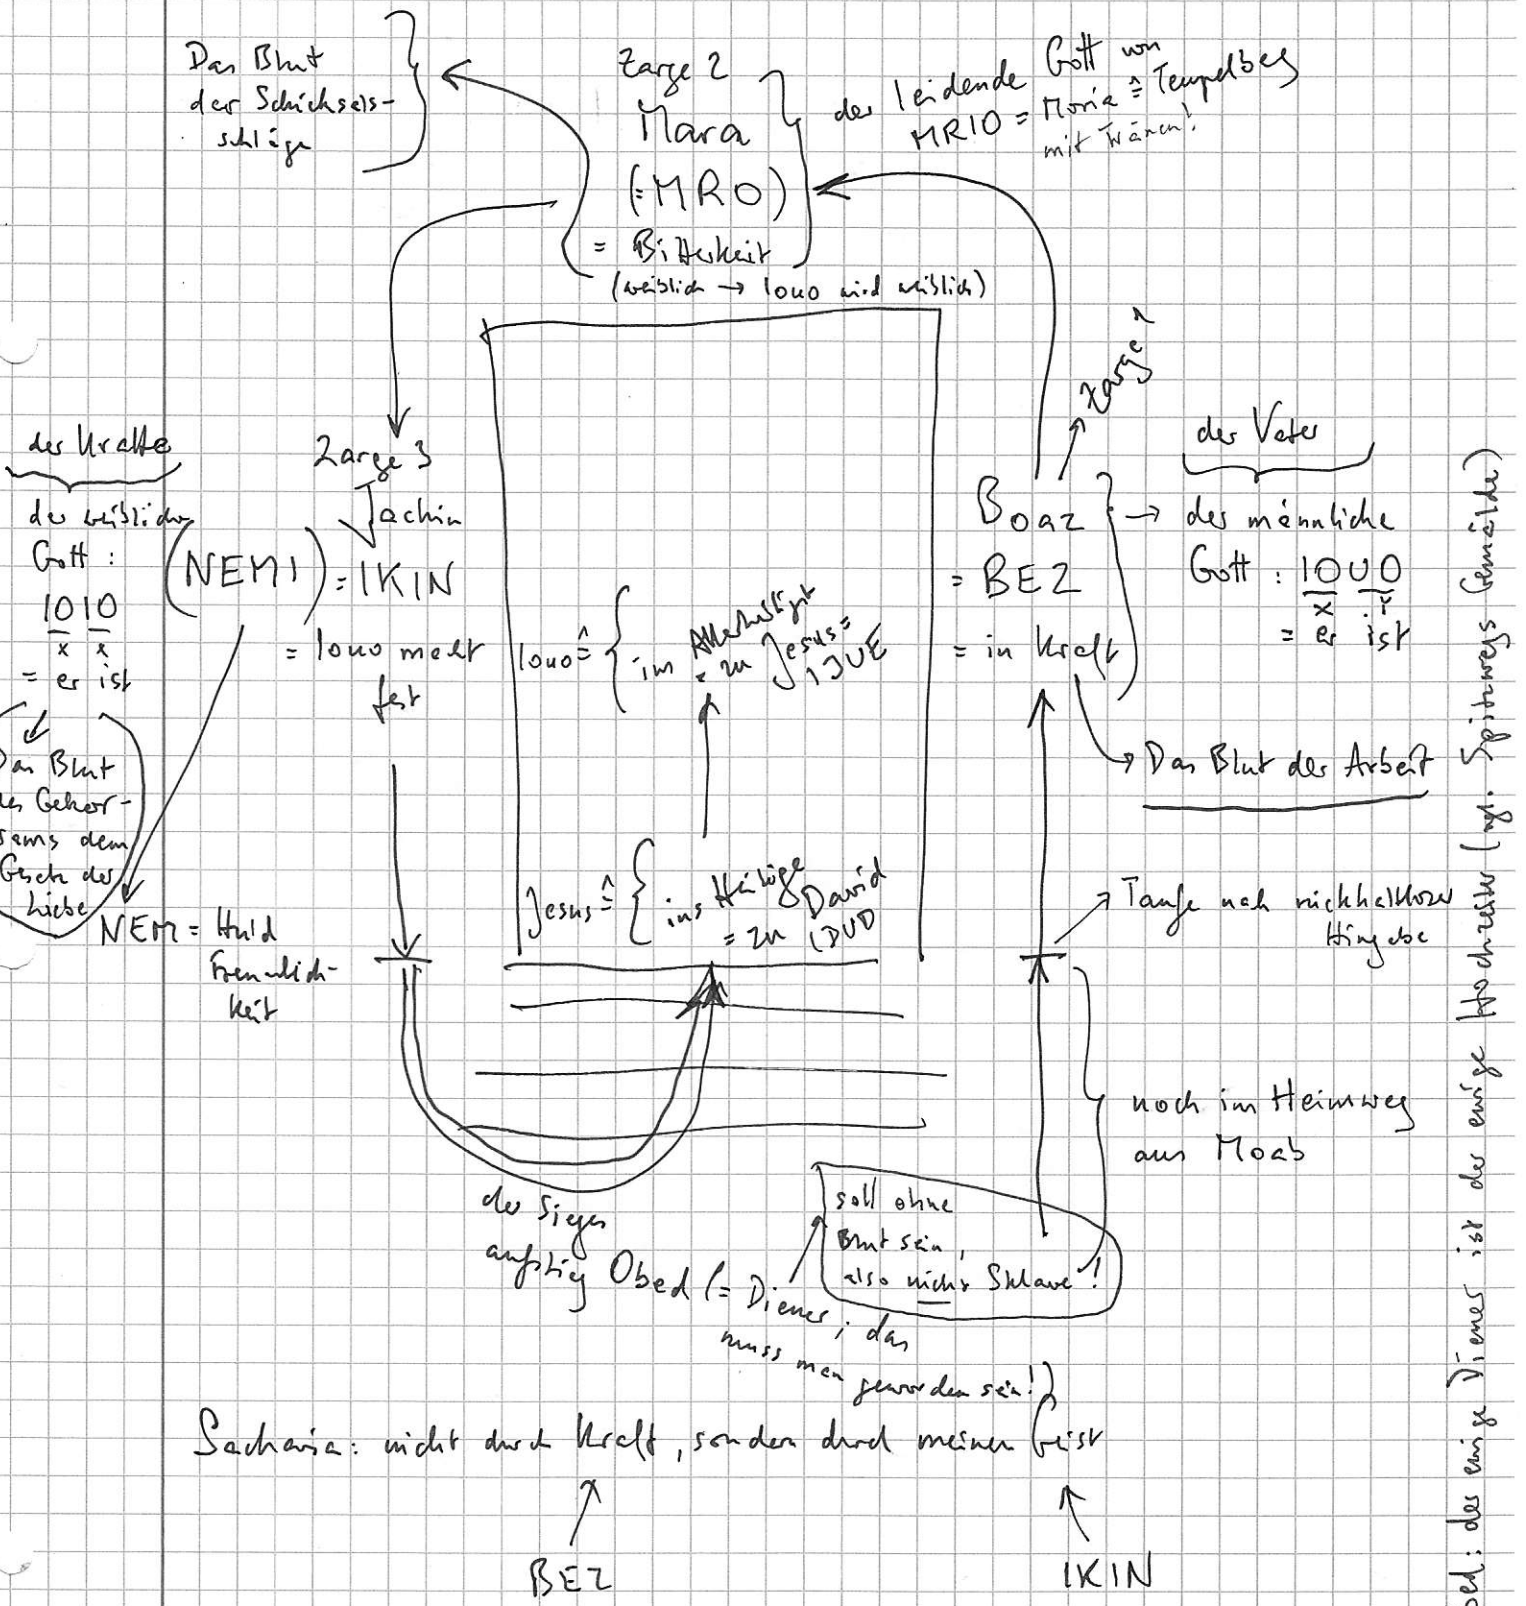 Das Blut
der Schicksals-
schläge
Zarge 2
Mara
(=MRO)
= Bitterkeit
(weiblich → IOUO wird weiblich)
der leidende Gott von
MRIO = Moria ≙ Tempelberg
mit Tränen!
Zarge 1
der Kräfte
der weibliche
Gott :
IOIO
x x
= er ist
Das Blut
des Gehor-
sams dem
Gesetz der
Liebe
Zarge 3
Jachin
(NEMI) = IKIN
= IOUO macht
fest
NEM = Huld
Freundlich-
keit
IOUO ≙ { im Allerheiligst
= zu Jesus =
IJUE
Jesus ≙ { ins Heilige
= zu David
IDUD
Boaz
= BEZ
= in Kraft
der Vater
→ der männliche
Gott : IOUO
x Y
= er ist
Das Blut der Arbeit
Taufe nach rückhaltloser
Hingabe
noch im Heimweg
aus Moab
der Sieges
aufstieg
Obed (= Diener; das
muss man geworden sein!)
soll ohne
Blut sein,
also nicht Sklave!
Sacharia: nicht durch Kraft, sondern durch meinen Geist
BEZ
IKIN
der einige Diener ist der ewige Hochzeiter (vgl. Spitzwegs Gemälde)